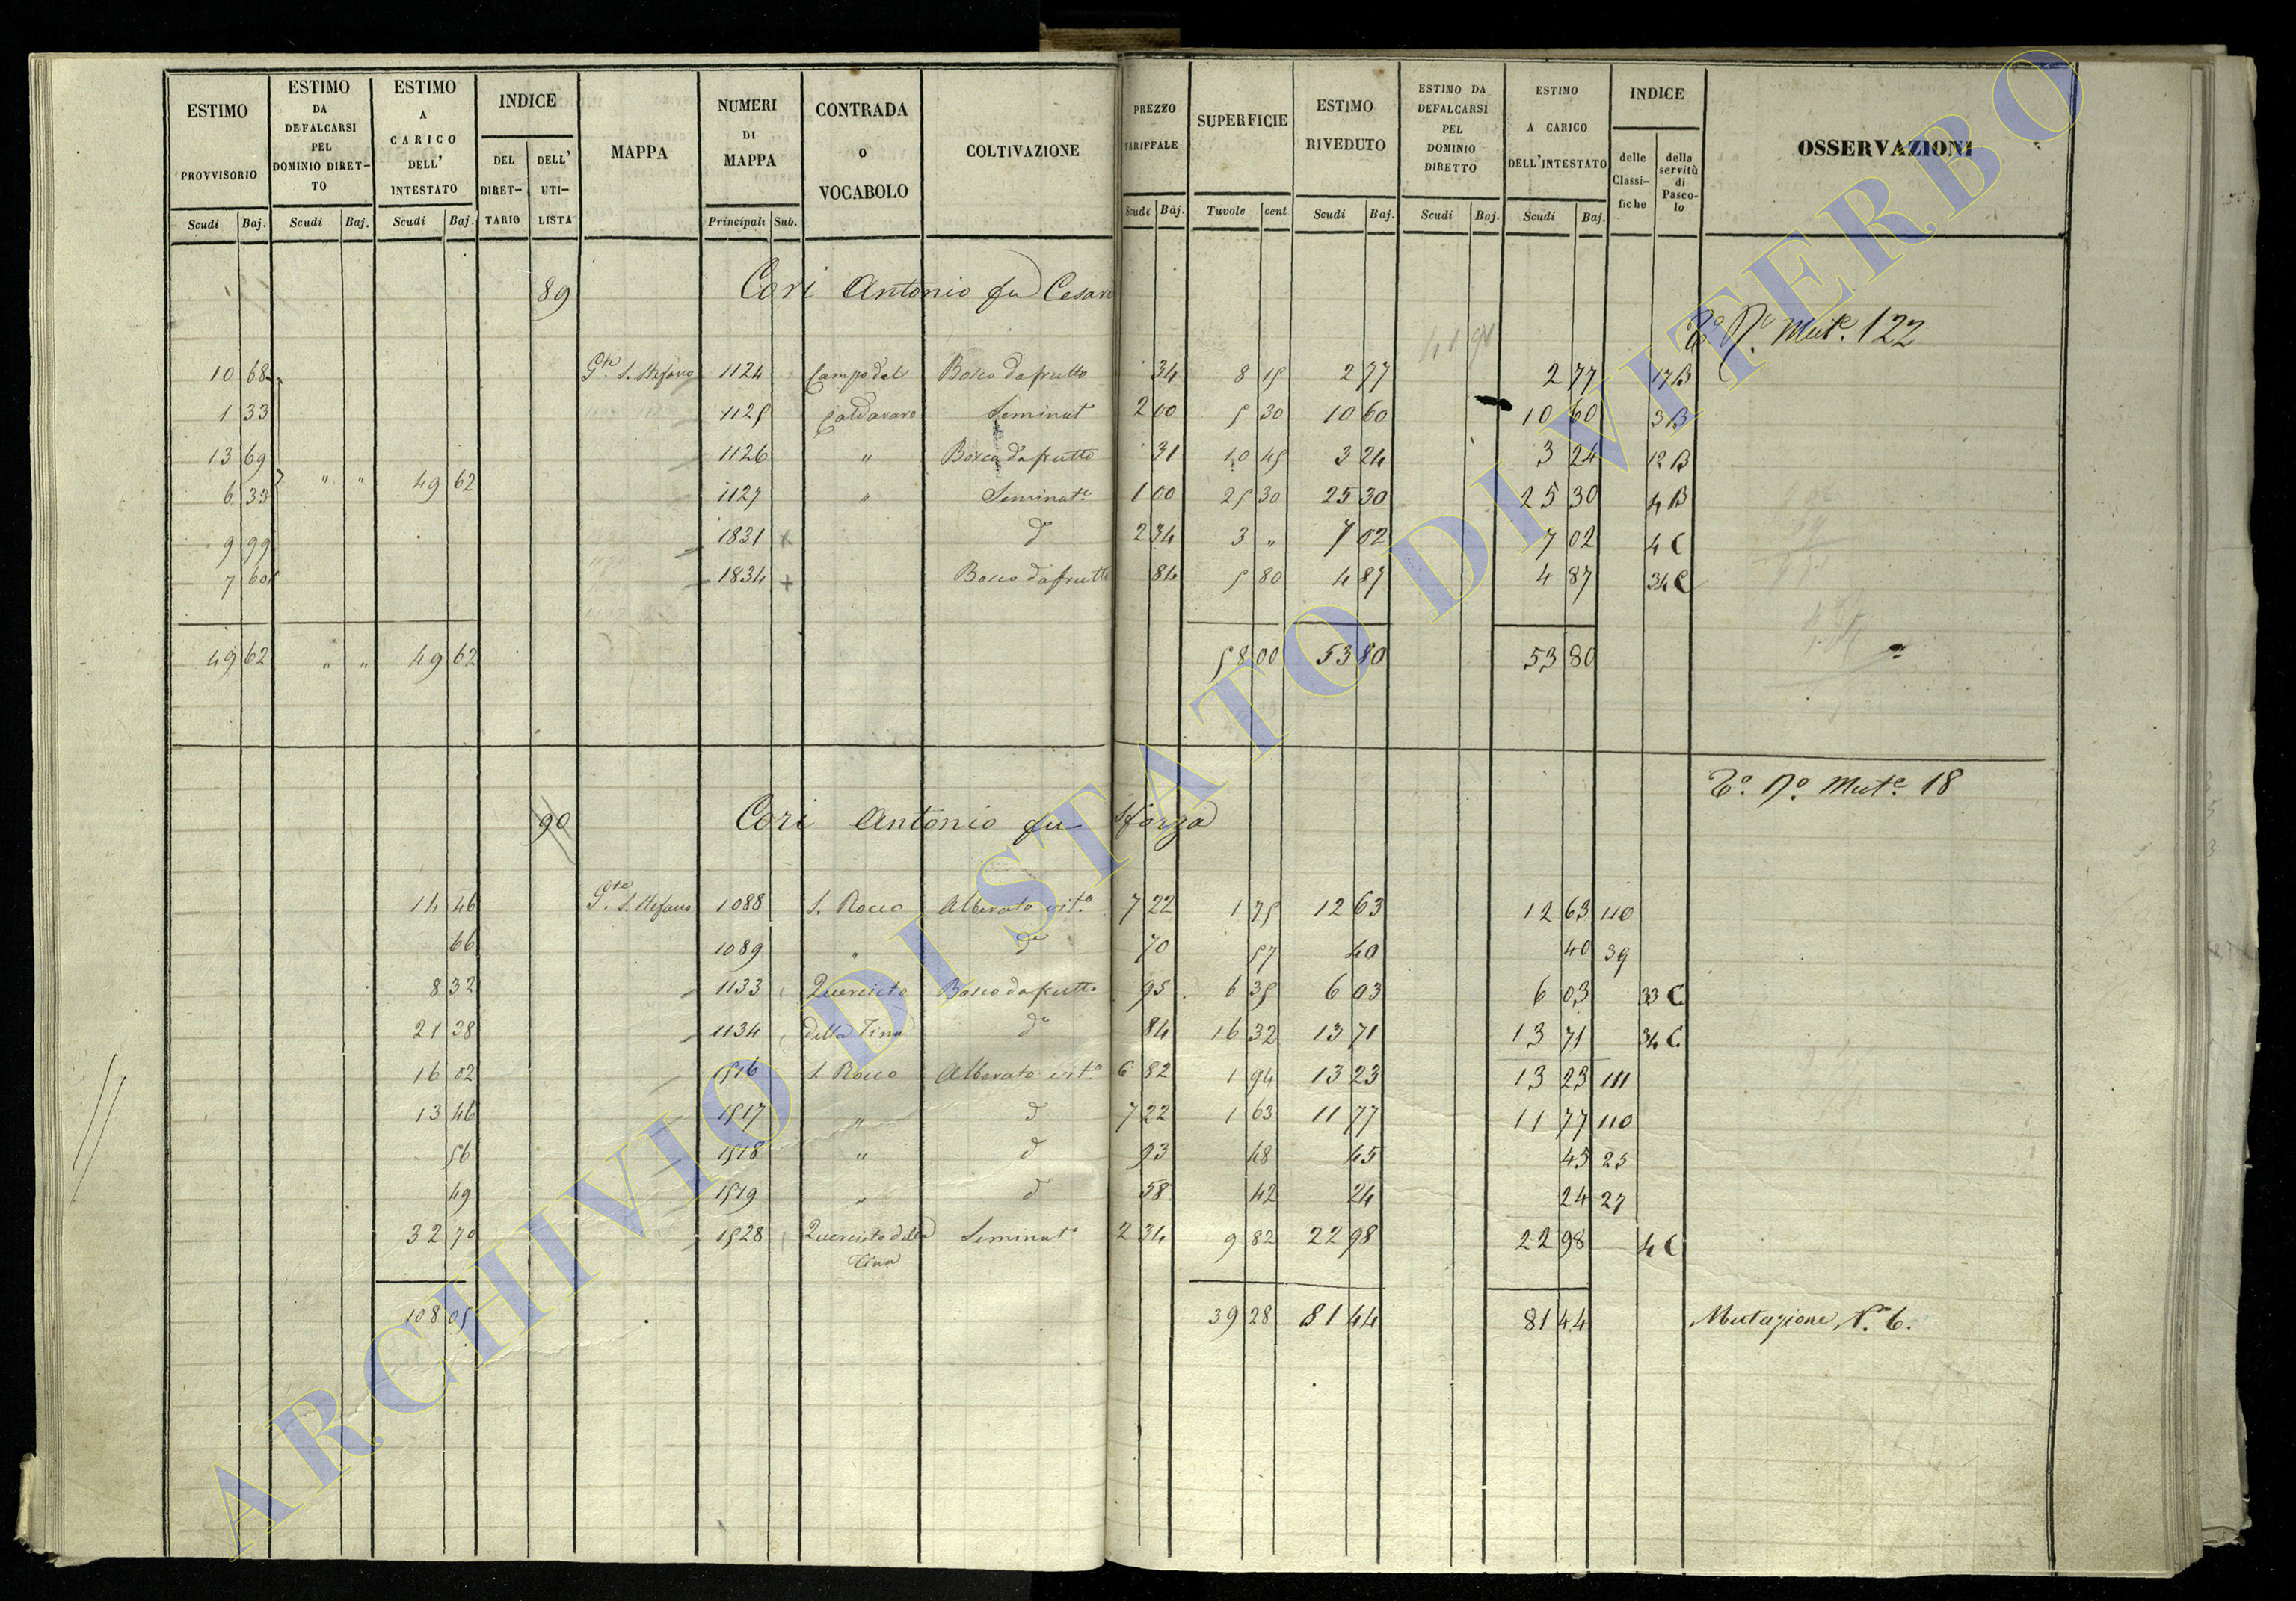 ESTIMO PROVVISORIO | ESTIMO DA DEFALCARSI PEL DOMINIO DIRET-TO | ESTIMO A CARICO DELL' INTESTATO | INDICE | MAPPA | NUMERI DI MAPPA | CONTRADA O VOCABOLO | COLTIVAZIONE | PREZZO TARIFFALE | SUPERFICIE | ESTIMO RIVEDUTO | ESTIMO DA DEFALCARSI PEL DOMINIO DIRETTO | ESTIMO A CARICO DELL'INTESTATO | INDICE | OSSERVAZIONI
DEL DIRET-TARIO | DELL' UTI-LISTA | delle Classi-fiche | della servitù di Pasco-lo
Scudi Baj. | Scudi Baj. | Scudi Baj. | Principali Sub. | Scudi Baj. | Tavole cent | Scudi Baj. | Scudi Baj. | Scudi Baj.
89 Cori Antonio fu Cesare
Mut.e 122
10 68 Gtte. S. Stefano 1124 Campo del Bosco da frutto 34 8 15 2 77 2 77 17 B
1 33 1125 Caldararo Seminat.o 2 00 5 30 10 60 10 60 3 B
13 69 1126 " Bosco da frutto 31 10 45 3 24 3 24 12 B
6 33 " " 49 62 1127 " Seminat.o 1 00 25 30 25 30 25 30 4 B
9 99 1831 x d.o 2 34 3 " 7 02 7 02 4 C
7 60 1834 + Bosco da frutto 84 5 80 4 87 4 87 34 C
49 62 " " 49 62 58 00 53 80 53 80
T.o N.o Mut.e 18
90 Cori Antonio fu Sforza
14 46 Gtte. S. Stefano 1088 S. Rocco Alberato vit.o 7 22 1 75 12 63 12 63 110
66 1089 " d.o 70 57 40 40 39
8 32 1133 Querceto Bosco da frutto 95 6 35 6 03 6 03 33 C
21 38 1134 della Tina d.o 84 16 32 13 71 13 71 34 C
16 02 1516 S. Rocco Alberato vit.o 6 82 1 94 13 23 13 23 111
13 46 1517 " d 7 22 1 63 11 77 11 77 110
56 1518 " d 93 48 45 45 25
49 1519 " d 58 42 24 24 27
32 70 1528 Querceto della Seminat.o 2 34 9 82 22 98 22 98 4 C
Tina
108 05 39 28 81 44 81 44 Mutazione N.o 6.
ARCHIVIO DI STATO DI VITERBO